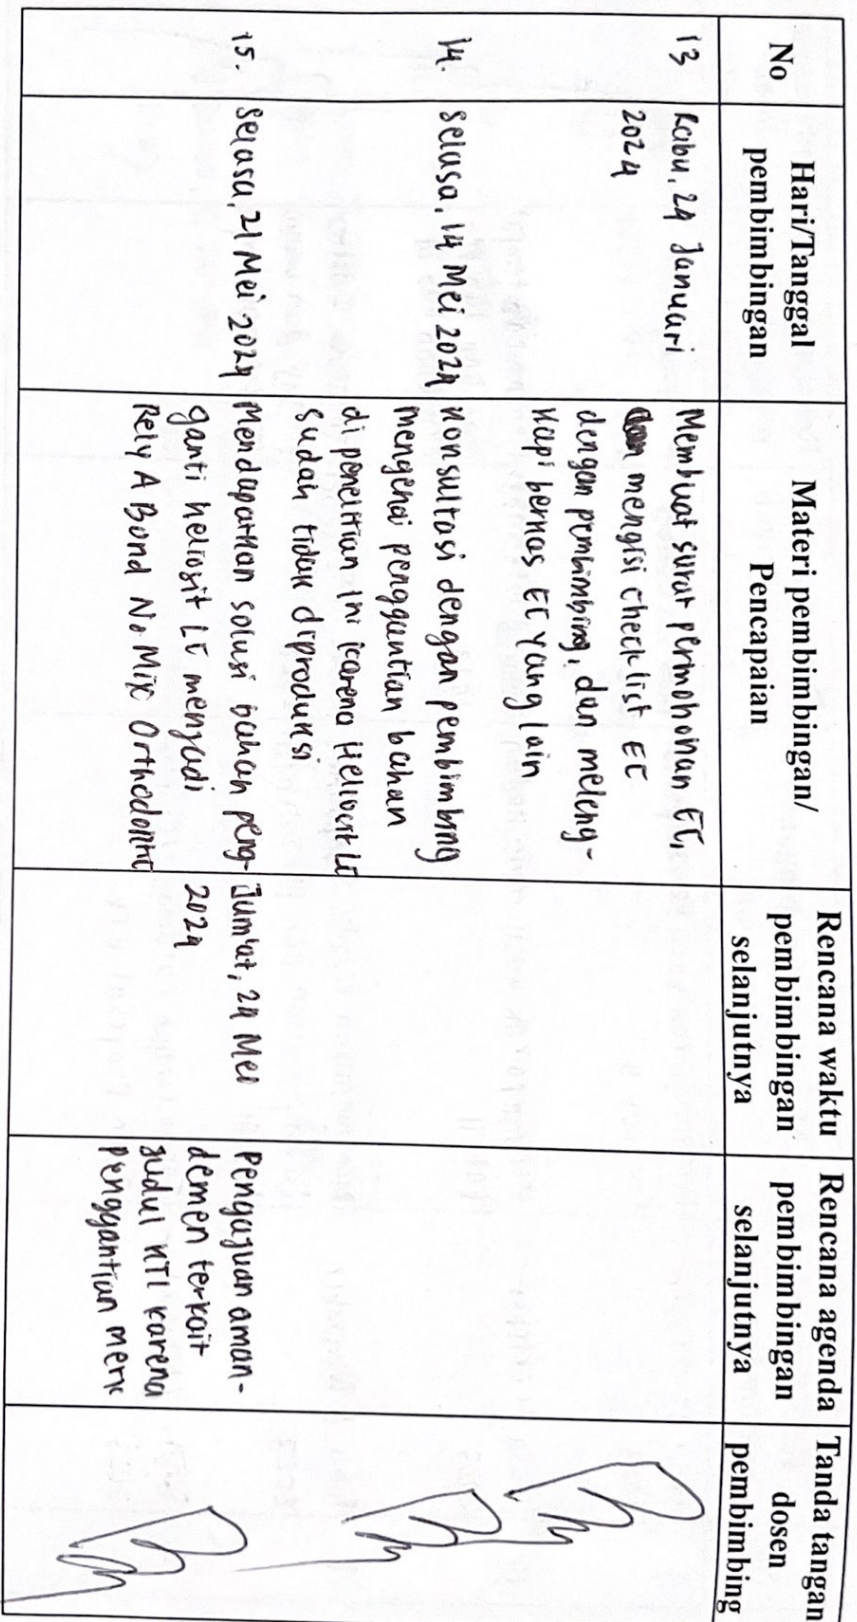 No
Hari/Tanggal
pembimbingan
Materi pembimbingan/
Pencapaian
Rencana waktu
pembimbingan
selanjutnya
Rencana agenda
pembimbingan
selanjutnya
Tanda tangan
dosen
pembimbing
13
Rabu, 24 Januari
2024
Membuat surat permohonan EC,
mengisi checklist EC
dengan pembimbing, dan meleng-
kapi bernas EC yang lain
14.
Selasa, 14 Mei 2024
Konsultasi dengan pembimbing
mengenai penggantian bahan
di penelitian ini karena Heliosit LC
sudah tidak diproduksi
15.
Selasa, 21 Mei 2024
Mendapatkan solusi bahan peng-
ganti heliosit LC menjadi
Rely A Bond No Mix Orthodontic
Jum'at, 24 Mei
2024
Pengajuan aman-
demen terkait
judul KTI karena
penggantian merk